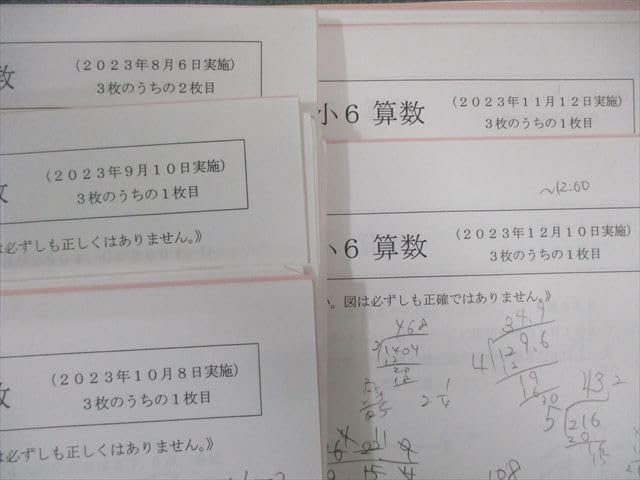 数 (2023年8月6日実施)
3枚のうちの2枚目
数 (2023年9月10日実施)
3枚のうちの1枚目
は必ずしも正しくはありません。》
数 (2023年10月8日実施)
3枚のうちの1枚目
は必ずしも正しくはありません。》
小6 算数 (2023年11月12日実施)
3枚のうちの1枚目
~12:00
小6 算数 (2023年12月10日実施)
3枚のうちの1枚目
い。図は必ずしも正確ではありません。》
468
3)1404
12
20
18
34.9
4)129.6
12
19
43 2
5)216
20
16
15
108